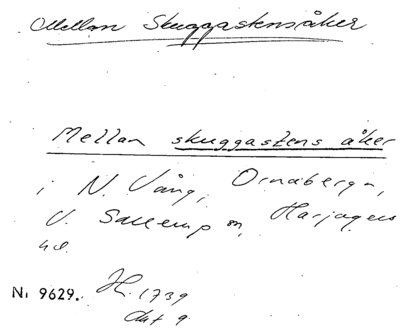 Mellan Skuggastensåker
Mellan skuggastens åker
i N. Vång, Ornaberga,
V. Sallerup sn, Harjagers
hd.
Nr 9629. H. 1739
akt 9